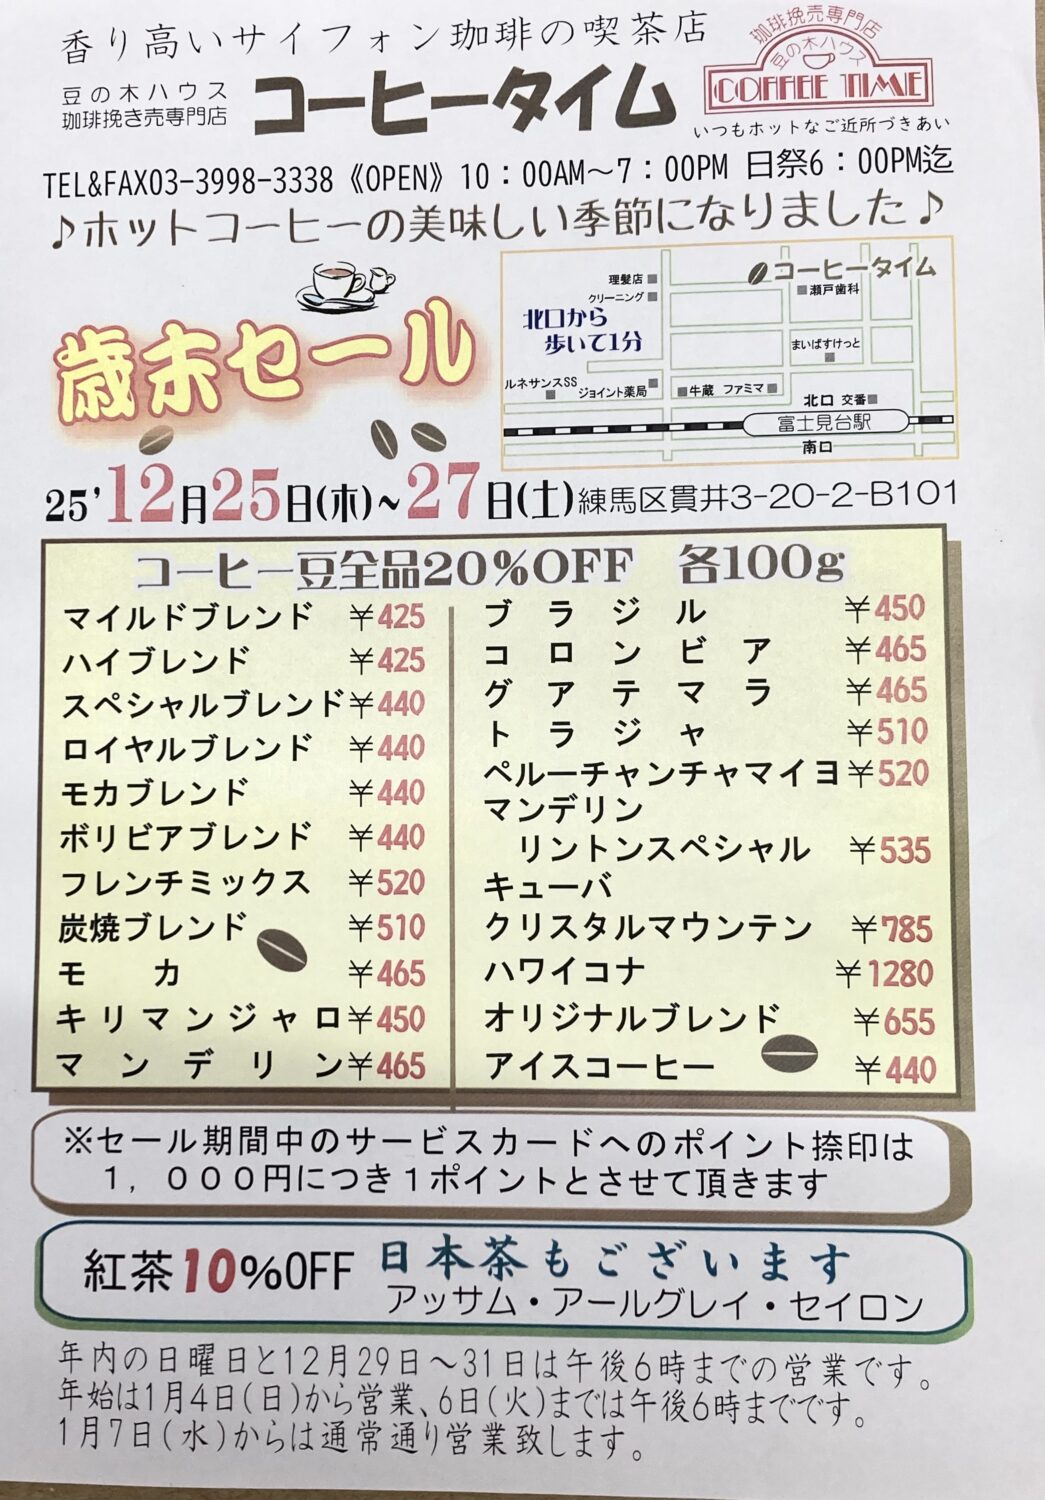 香り高いサイフォン珈琲の喫茶店
豆の木ハウス
珈琲挽き売専門店
コーヒータイム
珈琲挽売専門店
豆の木ハウス
COFFEE TIME
いつもホットなご近所づきあい
TEL&FAX03-3998-3338《OPEN》10：00AM～7：00PM 日祭6：00PM迄
♪ホットコーヒーの美味しい季節になりました♪
歳末セール
コーヒータイム
理髪店
クリーニング
瀬戸歯科
北口から
歩いて1分
まいばすけっと
ルネサンスSS
ジョイント薬局
牛蔵 ファミマ
北口 交番
富士見台駅
南口
25' 12月25日(木)～27日(土)練馬区貫井3-20-2-B101
コーヒー豆全品20%OFF 各100g
マイルドブレンド ￥425
ハイブレンド ￥425
スペシャルブレンド￥440
ロイヤルブレンド ￥440
モカブレンド ￥440
ボリビアブレンド ￥440
フレンチミックス ￥520
炭焼ブレンド ￥510
モカ ￥465
キリマンジャロ￥450
マンデリン￥465
ブラジル ￥450
コロンビア ￥465
グアテマラ ￥465
トラジャ ￥510
ペルーチャンチャマイヨ￥520
マンデリン
リントンスペシャル ￥535
キューバ
クリスタルマウンテン ￥785
ハワイコナ ￥1280
オリジナルブレンド ￥655
アイスコーヒー ￥440
※セール期間中のサービスカードへのポイント捺印は
１，０００円につき１ポイントとさせて頂きます
紅茶10%OFF 日本茶もございます
アッサム・アールグレイ・セイロン
年内の日曜日と12月29日～31日は午後6時までの営業です。
年始は1月4日(日)から営業、6日(火)までは午後6時までです。
1月7日(水)からは通常通り営業致します。